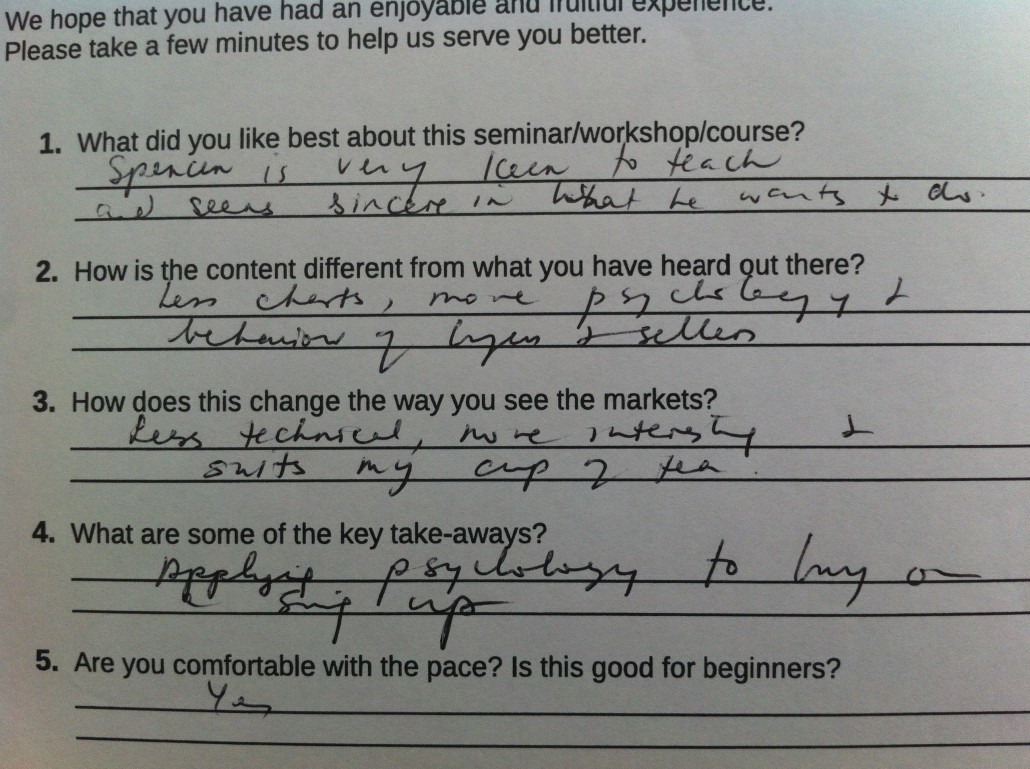 We hope that you have had an enjoyable and fruitful experience.
Please take a few minutes to help us serve you better.
1. What did you like best about this seminar/workshop/course?
Spencer is very keen to teach
and seems sincere in what he wants to do.
2. How is the content different from what you have heard out there?
Less charts, more psychology &
behaviour of buyers & sellers
3. How does this change the way you see the markets?
Less technical, more interesting &
suits my cup of tea.
4. What are some of the key take-aways?
Applying psychology to buy on
up
5. Are you comfortable with the pace? Is this good for beginners?
Yes